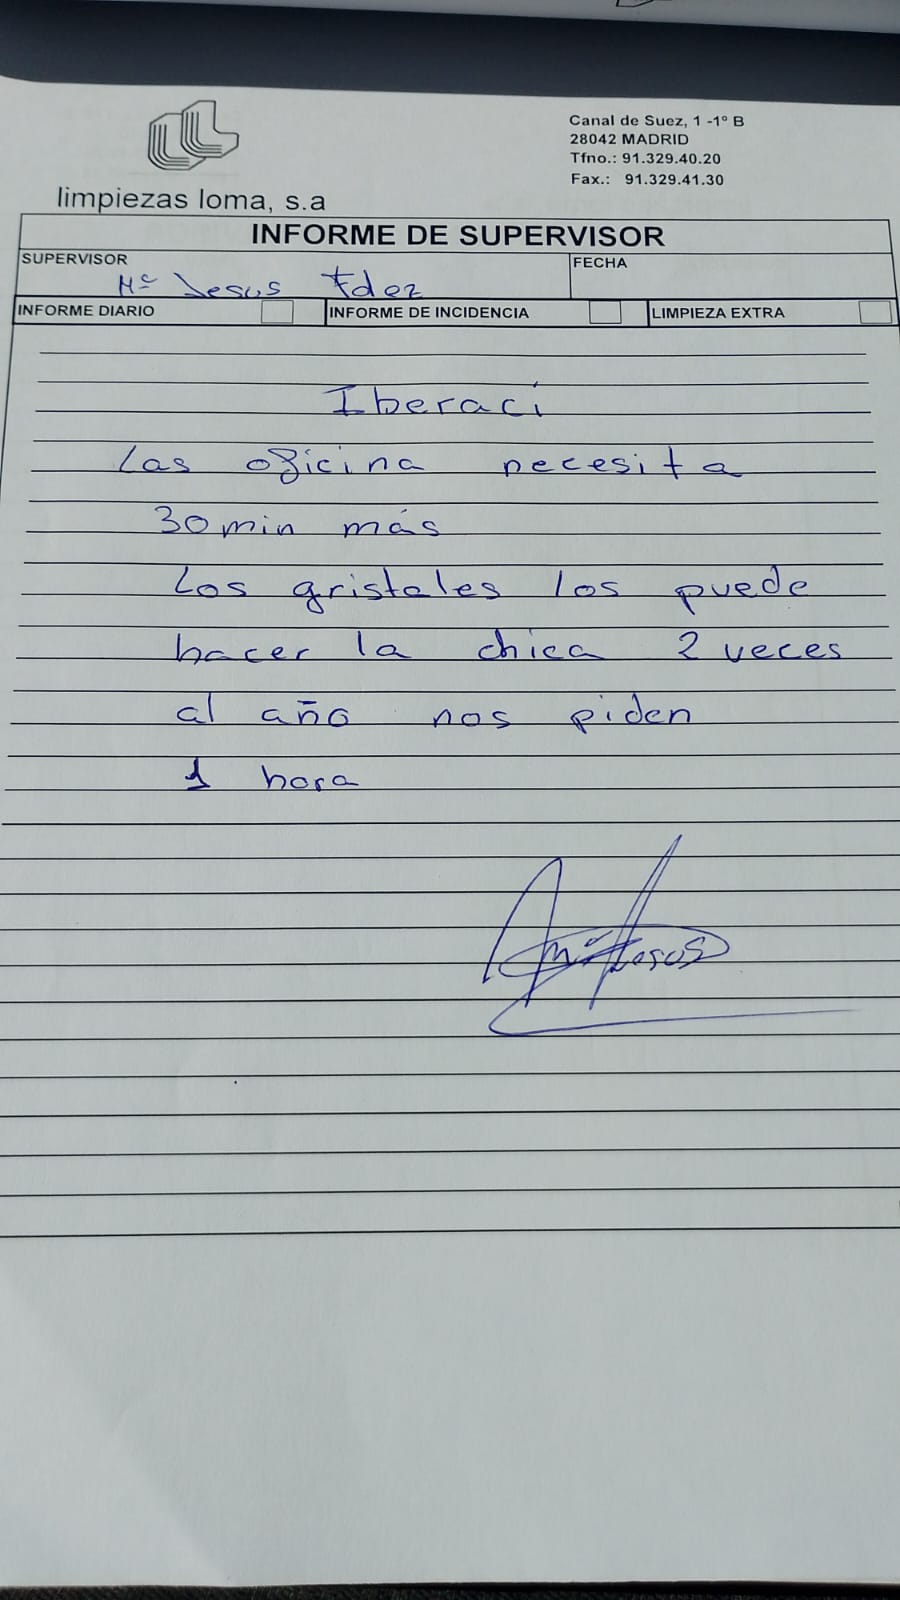 limpiezas loma, s.a
Canal de Suez, 1 -1º B
28042 MADRID
Tfno.: 91.329.40.20
Fax.: 91.329.41.30
INFORME DE SUPERVISOR
SUPERVISOR
Mª Jesus Fdez
FECHA
INFORME DIARIO
INFORME DE INCIDENCIA
LIMPIEZA EXTRA
Iberaci
Las oficina necesita
30 min más
Los gristales los puede
hacer la chica 2 veces
al año nos piden
1 hora
Mª Jesus